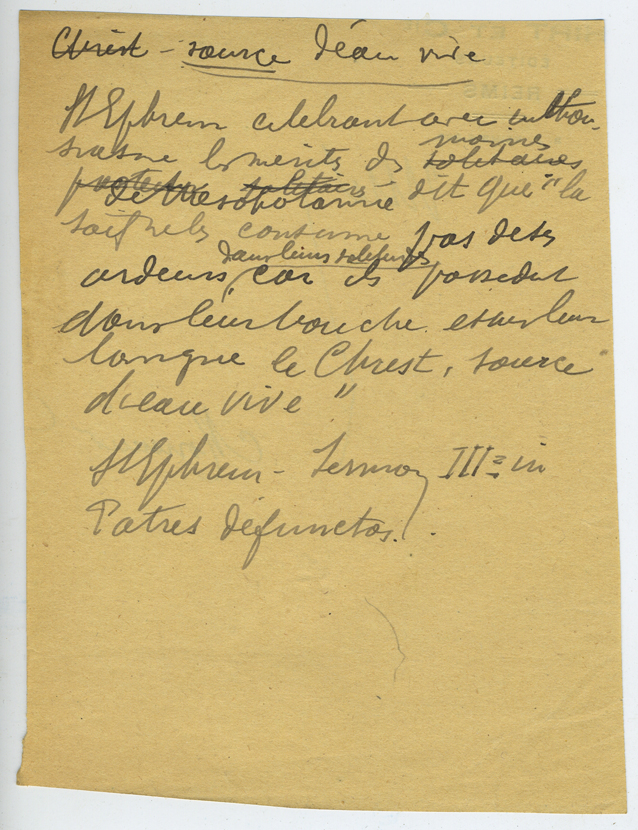 Christ - source d'eau vive
St Ephrem célébrant avec enthou-
siasme les mérites des solitaires moines
de Mésopotamie dit que "la
soif ne les consume pas de ses
ardeurs dans leurs solitudes, car ils possèdent
dans leur bouche et sur leur
langue le Christ, source
d'eau vive"
St Ephrem - Sermon III in
Patres defunctos.
REIMS